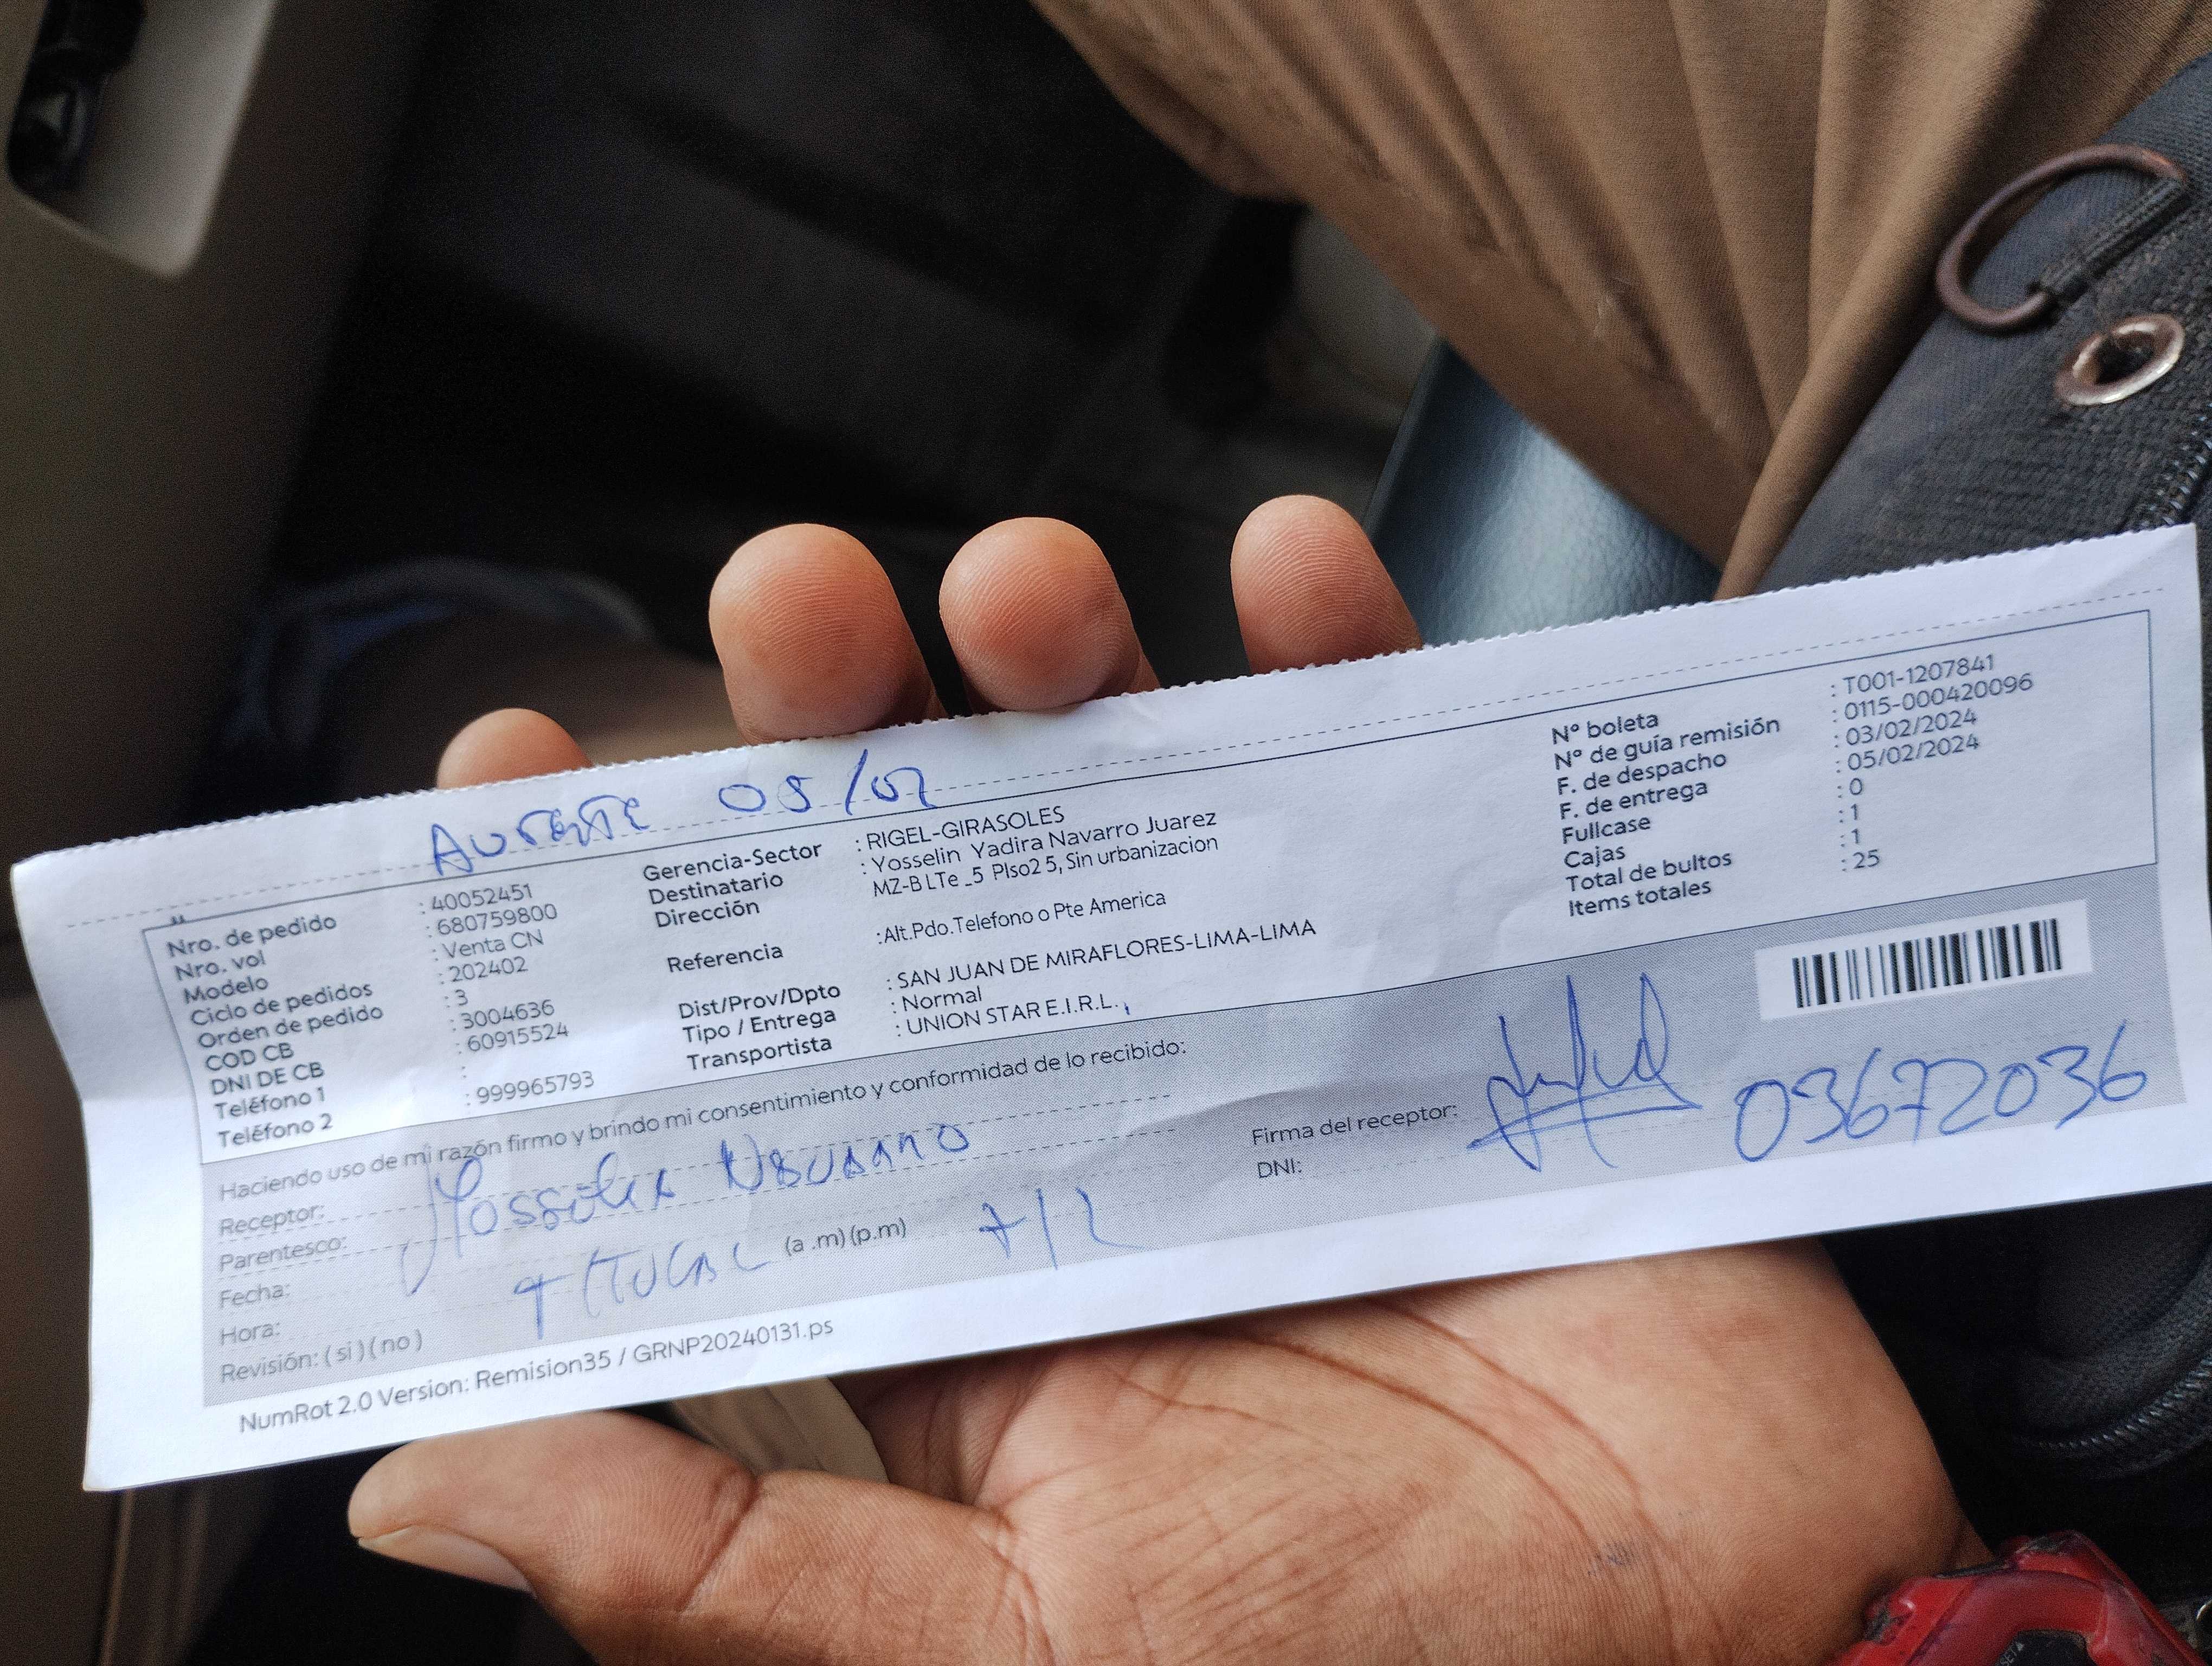 AUSENTE 05/02
Nro. de pedido : 40052451
Nro. vol : 680759800
Modelo : Venta CN
Ciclo de pedidos : 202402
Orden de pedido : 3
COD CB : 3004636
DNI DE CB : 60915524
Teléfono 1 :
Teléfono 2 : 999965793
Gerencia-Sector : RIGEL-GIRASOLES
Destinatario : Yosselin Yadira Navarro Juarez
Dirección MZ-B LTe _5 PIso2 5, Sin urbanizacion
Referencia :Alt.Pdo.Telefono o Pte America
Dist/Prov/Dpto : SAN JUAN DE MIRAFLORES-LIMA-LIMA
Tipo / Entrega : Normal
Transportista : UNION STAR E.I.R.L.
Nº boleta : T001-1207841
Nº de guía remisión : 0115-000420096
F. de despacho : 03/02/2024
F. de entrega : 05/02/2024
Fullcase : 0
Cajas : 1
Total de bultos : 1
Items totales : 25
Haciendo uso de mi razón firmo y brindo mi consentimiento y conformidad de lo recibido:
Receptor:
Parentesco:
Fecha:
Hora: (a .m) (p.m)
Revisión: ( si ) ( no )
TITULAR 7/2
Firma del receptor:
DNI: 03672036
NumRot 2.0 Version: Remision35 / GRNP20240131.ps